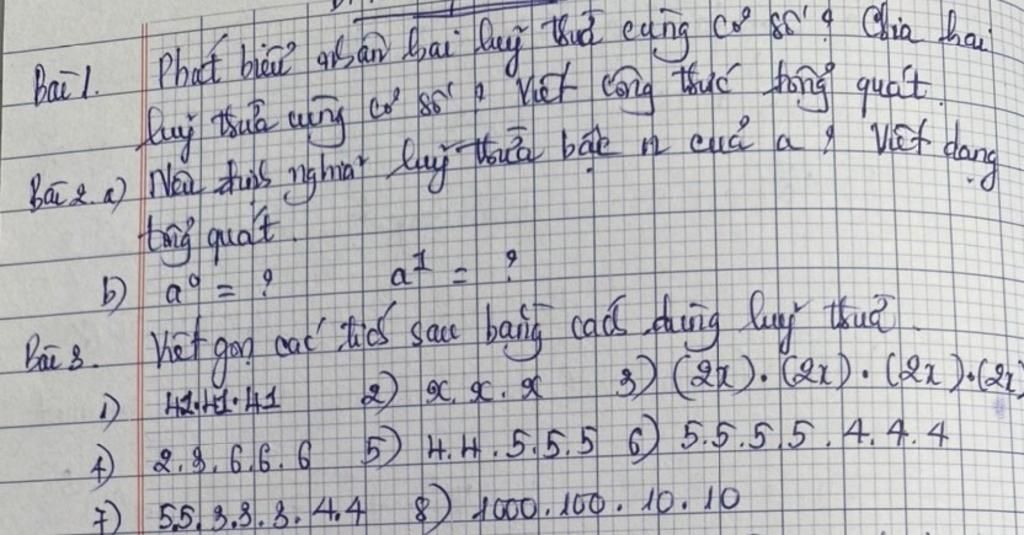 Bài 1. Phát biểu nhân hai luỹ thừa cùng cơ số ? Chia hai
luỹ thừa cùng cơ số ? Viết công thức tổng quát.
Bài 2. a) Nêu định nghĩa luỹ thừa bậc n của a ? Viết dạng
tổng quát.
b) a⁰ = ? a¹ = ?
Bài 3. Viết gọn các tích sau bằng cách dùng luỹ thừa.
1) 41.41.41 2) x.x.x 3) (2x).(2x).(2x).(2x)
4) 2.3.6.6.6 5) 4.4.5.5.5 6) 5.5.5.5.4.4.4
7) 5.5.3.3.3.4.4 8) 1000.100.10.10